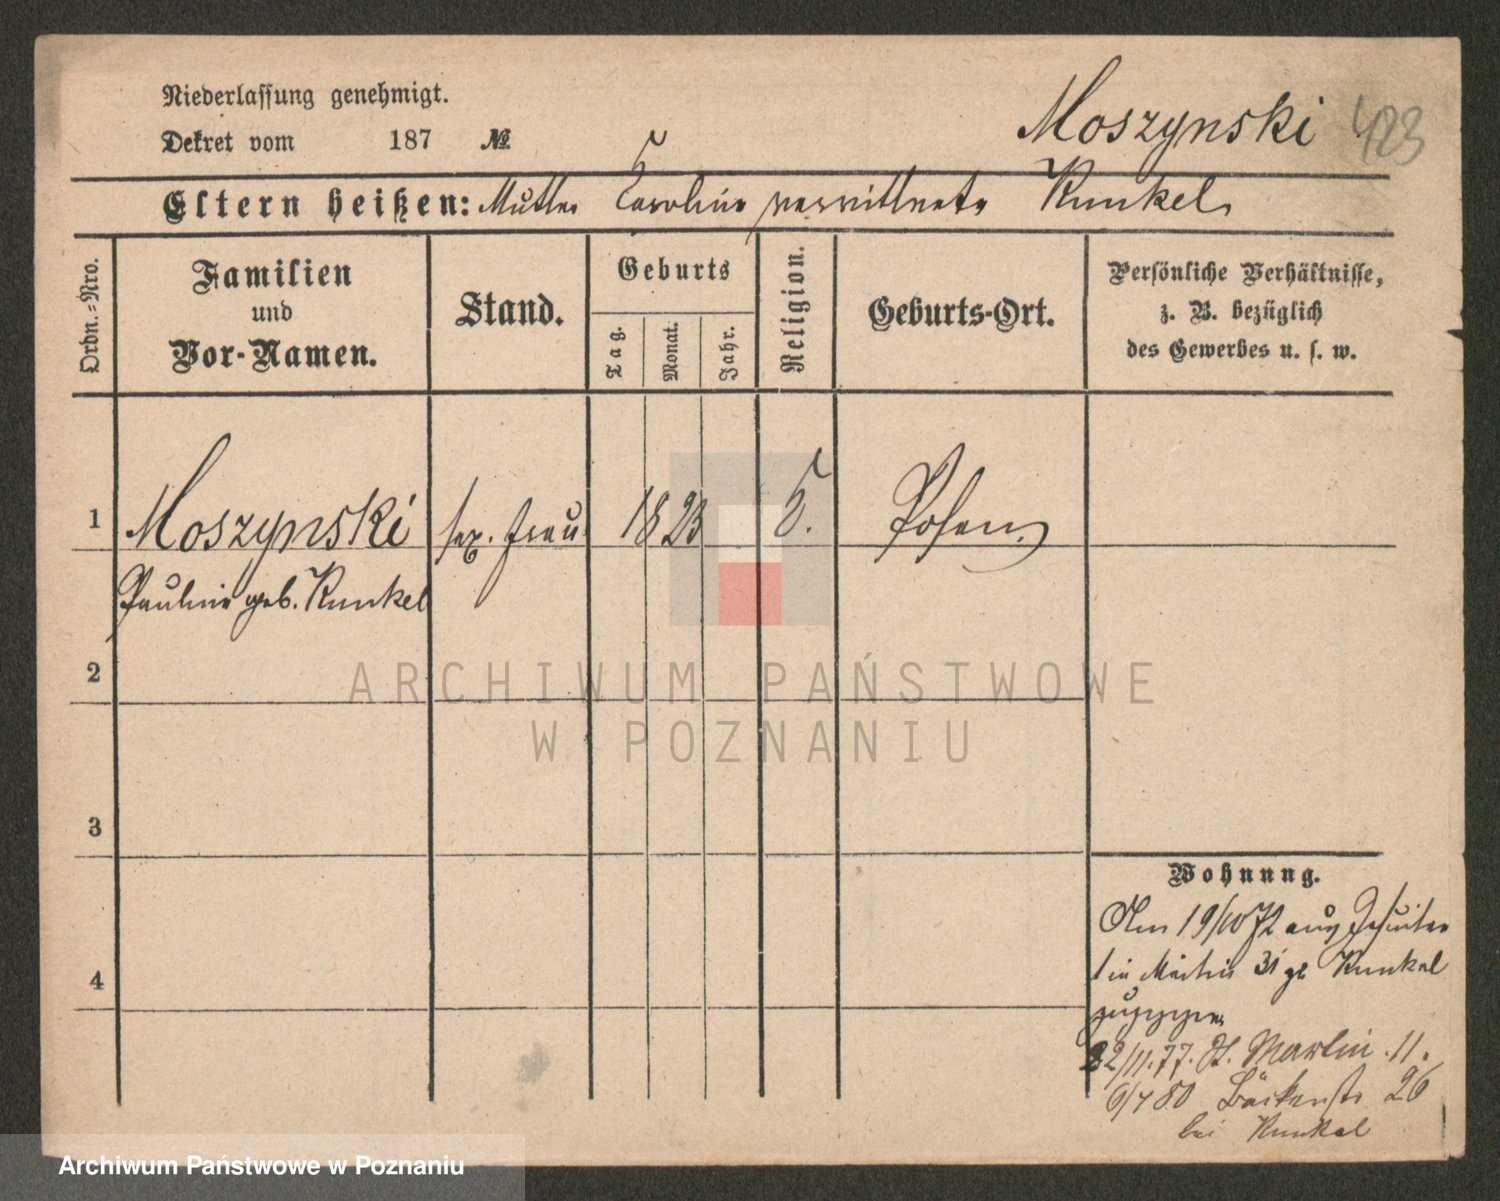 Niederlassung genehmigt.
Dekret vom 187 №
Moszynski 423
Eltern heißen: Mutter Caroline verwittwete Kunkel
Ordn.=Nro.
Familien
und
Vor-Namen.
Stand.
Geburts
Tag.
Monat.
Jahr.
Religion.
Geburts-Ort.
Persönliche Verhältnisse,
z. B. bezüglich
des Gewerbes u. s. w.
1 Moszynski sep. Frau 1823 Posen
Pauline geb. Kunkel
2
ARCHIWUM PAŃSTWOWE
W POZNANIU
3
4
Wohnung.
Am 19/10 72 aus Jesuiter
Martin 31 Kunkel
22/11.77. St. Martin 11.
6/4 80 Bäckerstr 26
bei Kunkel
Archiwum Państwowe w Poznaniu